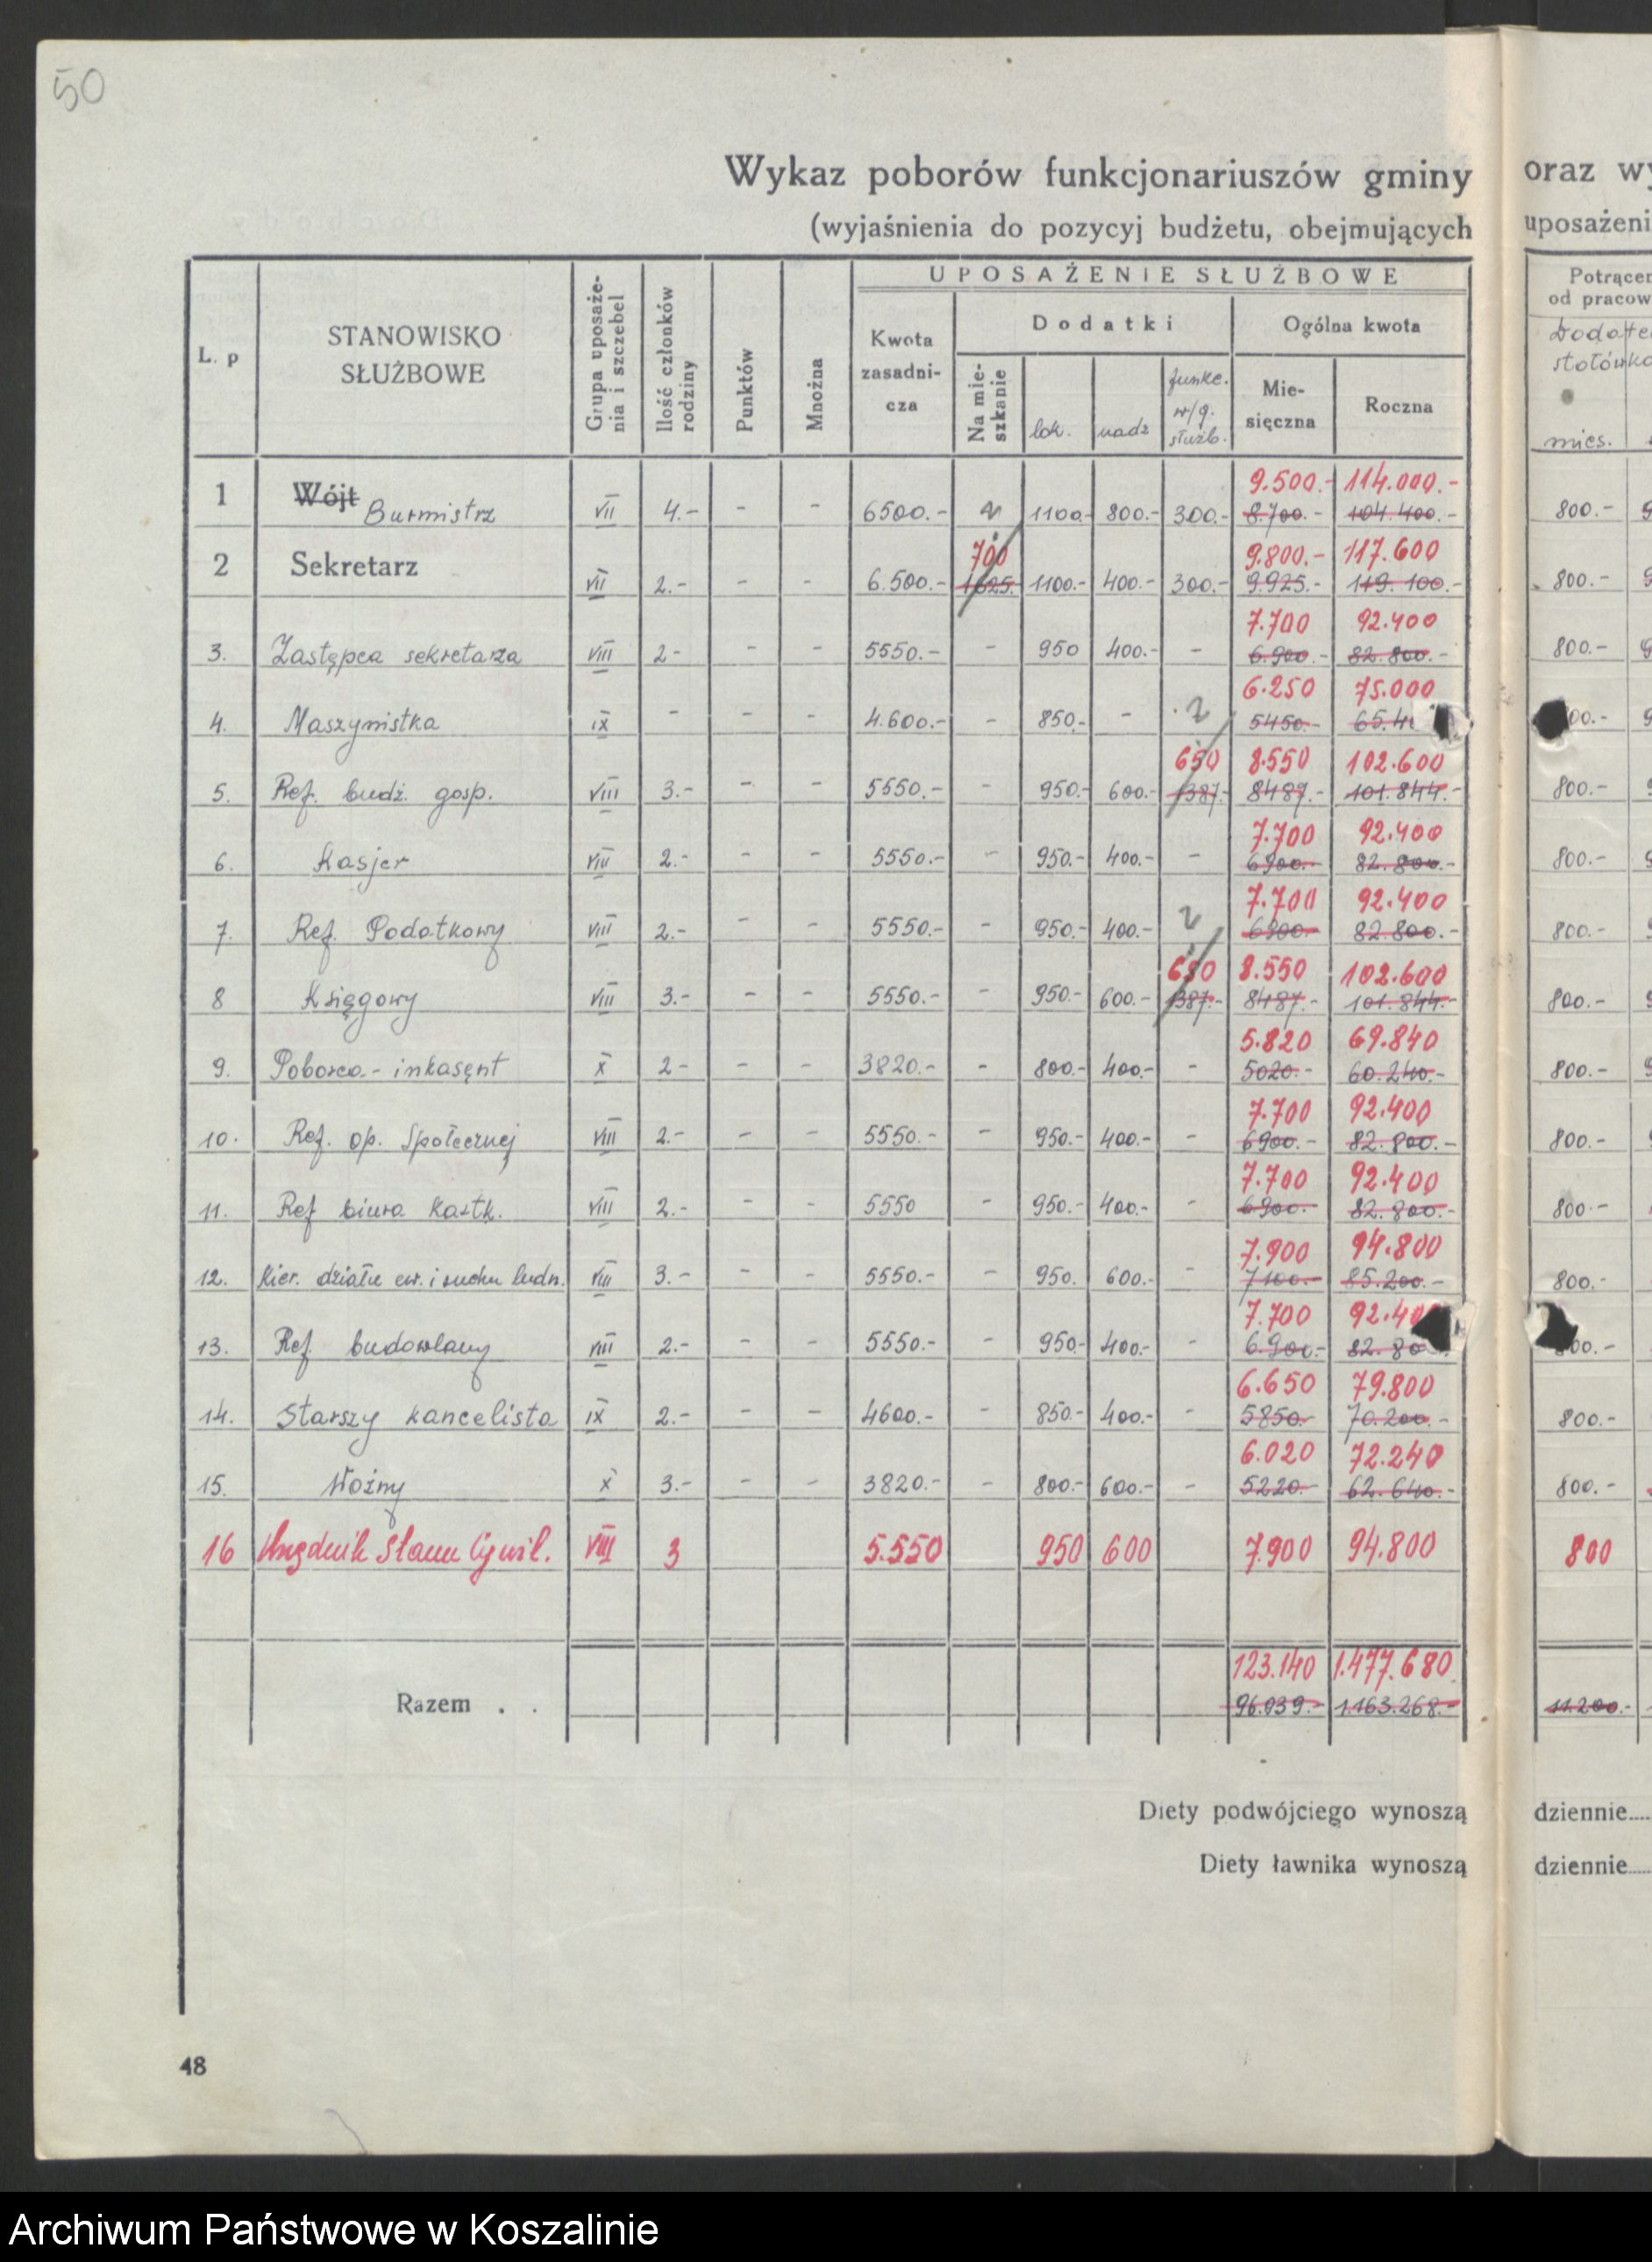 50
Wykaz poborów funkcjonariuszów gminy oraz wy
(wyjaśnienia do pozycyj budżetu, obejmujących uposażeni
L. p STANOWISKO SŁUŻBOWE Grupa uposażenia i szczebel Ilość członków rodziny Punktów Mnożna UPOSAŻENIE SŁUŻBOWE Potrącen
od pracow
Kwota zasadnicza Dodatki Ogólna kwota Dodate
stołówko
Na mieszkanie lok. nadz funkc. w/g. służb. Miesięczna Roczna mies.
9.500.- 114.000.-
1 Wójt Burmistrz VII 4.- - - 6500.- 1100.- 800.- 300.- 8.700.- 104.400.- 800.-
700 9.800.- 117.600
2 Sekretarz VII 2.- - - 6.500.- 1625. 1100.- 400.- 300.- 9.925.- 119.100.- 800.-
7.700 92.400
3. Zastępca sekretarza VIII 2- - - 5550.- - 950 400.- - 6.900.- 82.800.- 800.-
6.250 75.000
4. Maszynistka IX - - - 4.600.- - 850.- - 5450.- 65.4 00.-
650 8.550 102.600
5. Ref. budż. gosp. VIII 3.- - - 5550.- - 950.- 600.- 1387.- 8487.- 101.844.- 800.-
7.700 92.400
6. Kasjer VIII 2.- - - 5550.- - 950.- 400.- - 6900.- 82.800.- 800.-
7.700 92.400
7. Ref. Podatkowy VIII 2.- - - 5550.- - 950.- 400.- 6900.- 82.800.- 800.-
650 8.550 102.600
8 Księgowy VIII 3.- - - 5550.- - 950.- 600.- 1387.- 8487.- 101.844.- 800.-
5.820 69.840
9. Poborca - inkasęnt X 2- - - 3820.- - 800.- 400.- - 5020.- 60.240.- 800.-
7.700 92.400
10. Ref. op. Społecznej VIII 2.- - - 5550.- - 950.- 400.- - 6900.- 82.800.- 800.-
7.700 92.400
11. Ref biura kartk. VIII 2.- - - 5550 - 950.- 400.- - 6900.- 82.800.- 800.-
7.900 94.800
12. Kier. działu ew. i ruchu ludn. VIII 3.- - - 5550.- - 950. 600.- - 7100.- 85.200.- 800.-
7.700 92.40
13. Ref. budowlany VIII 2.- - - 5550.- - 950.- 400.- - 6.900.- 82.80 00.-
6.650 79.800
14. Starszy kancelista IX 2.- - - 4600.- - 850.- 400.- - 5850.- 70.200.- 800.-
6.020 72.240
15. Woźny X 3.- - - 3820.- - 800.- 600.- - 5220.- 62.640.- 800.-
16 Urzędnik Stanu Cywil. VIII 3 5.550 950 600 7.900 94.800 800
123.140 1.477.680
Razem . . 96.939.- 1.163.268.- 11.200.-
Diety podwójciego wynoszą dziennie.....
Diety ławnika wynoszą dziennie.....
48
Archiwum Państwowe w Koszalinie